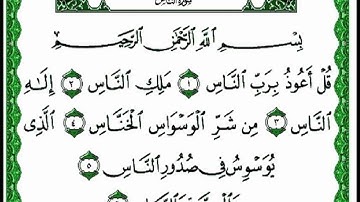 سُورَةُ النَّاسِ
بِسْمِ ٱللَّهِ ٱلرَّحْمَٰنِ ٱلرَّحِيمِ
قُلْ أَعُوذُ بِرَبِّ ٱلنَّاسِ ١ مَلِكِ ٱلنَّاسِ ٢ إِلَٰهِ
ٱلنَّاسِ ٣ مِن شَرِّ ٱلْوَسْوَاسِ ٱلْخَنَّاسِ ٤ ٱلَّذِى
يُوَسْوِسُ فِى صُدُورِ ٱلنَّاسِ ٥